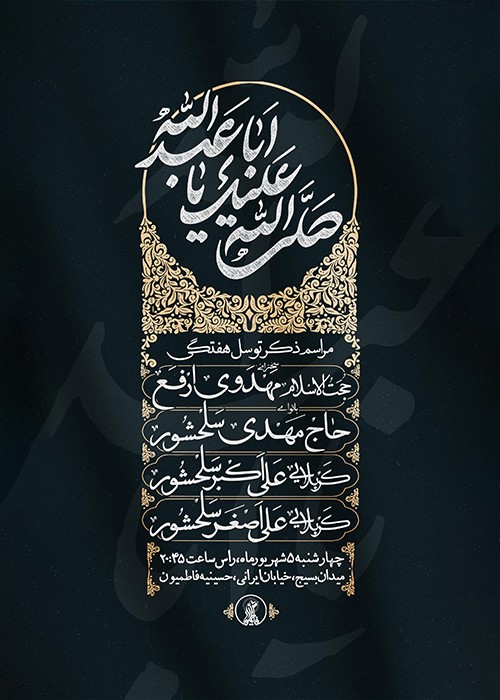 صَلَّی اللّٰه عَلَیْکَ یا اَبا عَبْدِ اللّٰه
مراسم ذکر توسل هفتگی
سخنرانی
حجت الاسلام مهدوی ارفع
با نوای
حاج مهدی سلحشور
کربلایی علی اکبر سلحشور
کربلایی علی اصغر سلحشور
چهارشنبه ۵ شهریورماه، راس ساعت ۲۰:۴۵
میدان بسیج، خیابان ایرانی، حسینیه فاطمیون